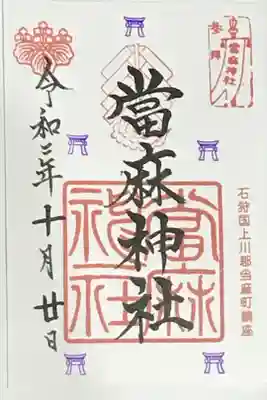 奉拝
當麻神社
石狩国上川郡当麻町鎮座
當麻神社
當麻神社
令和二年十月廿日